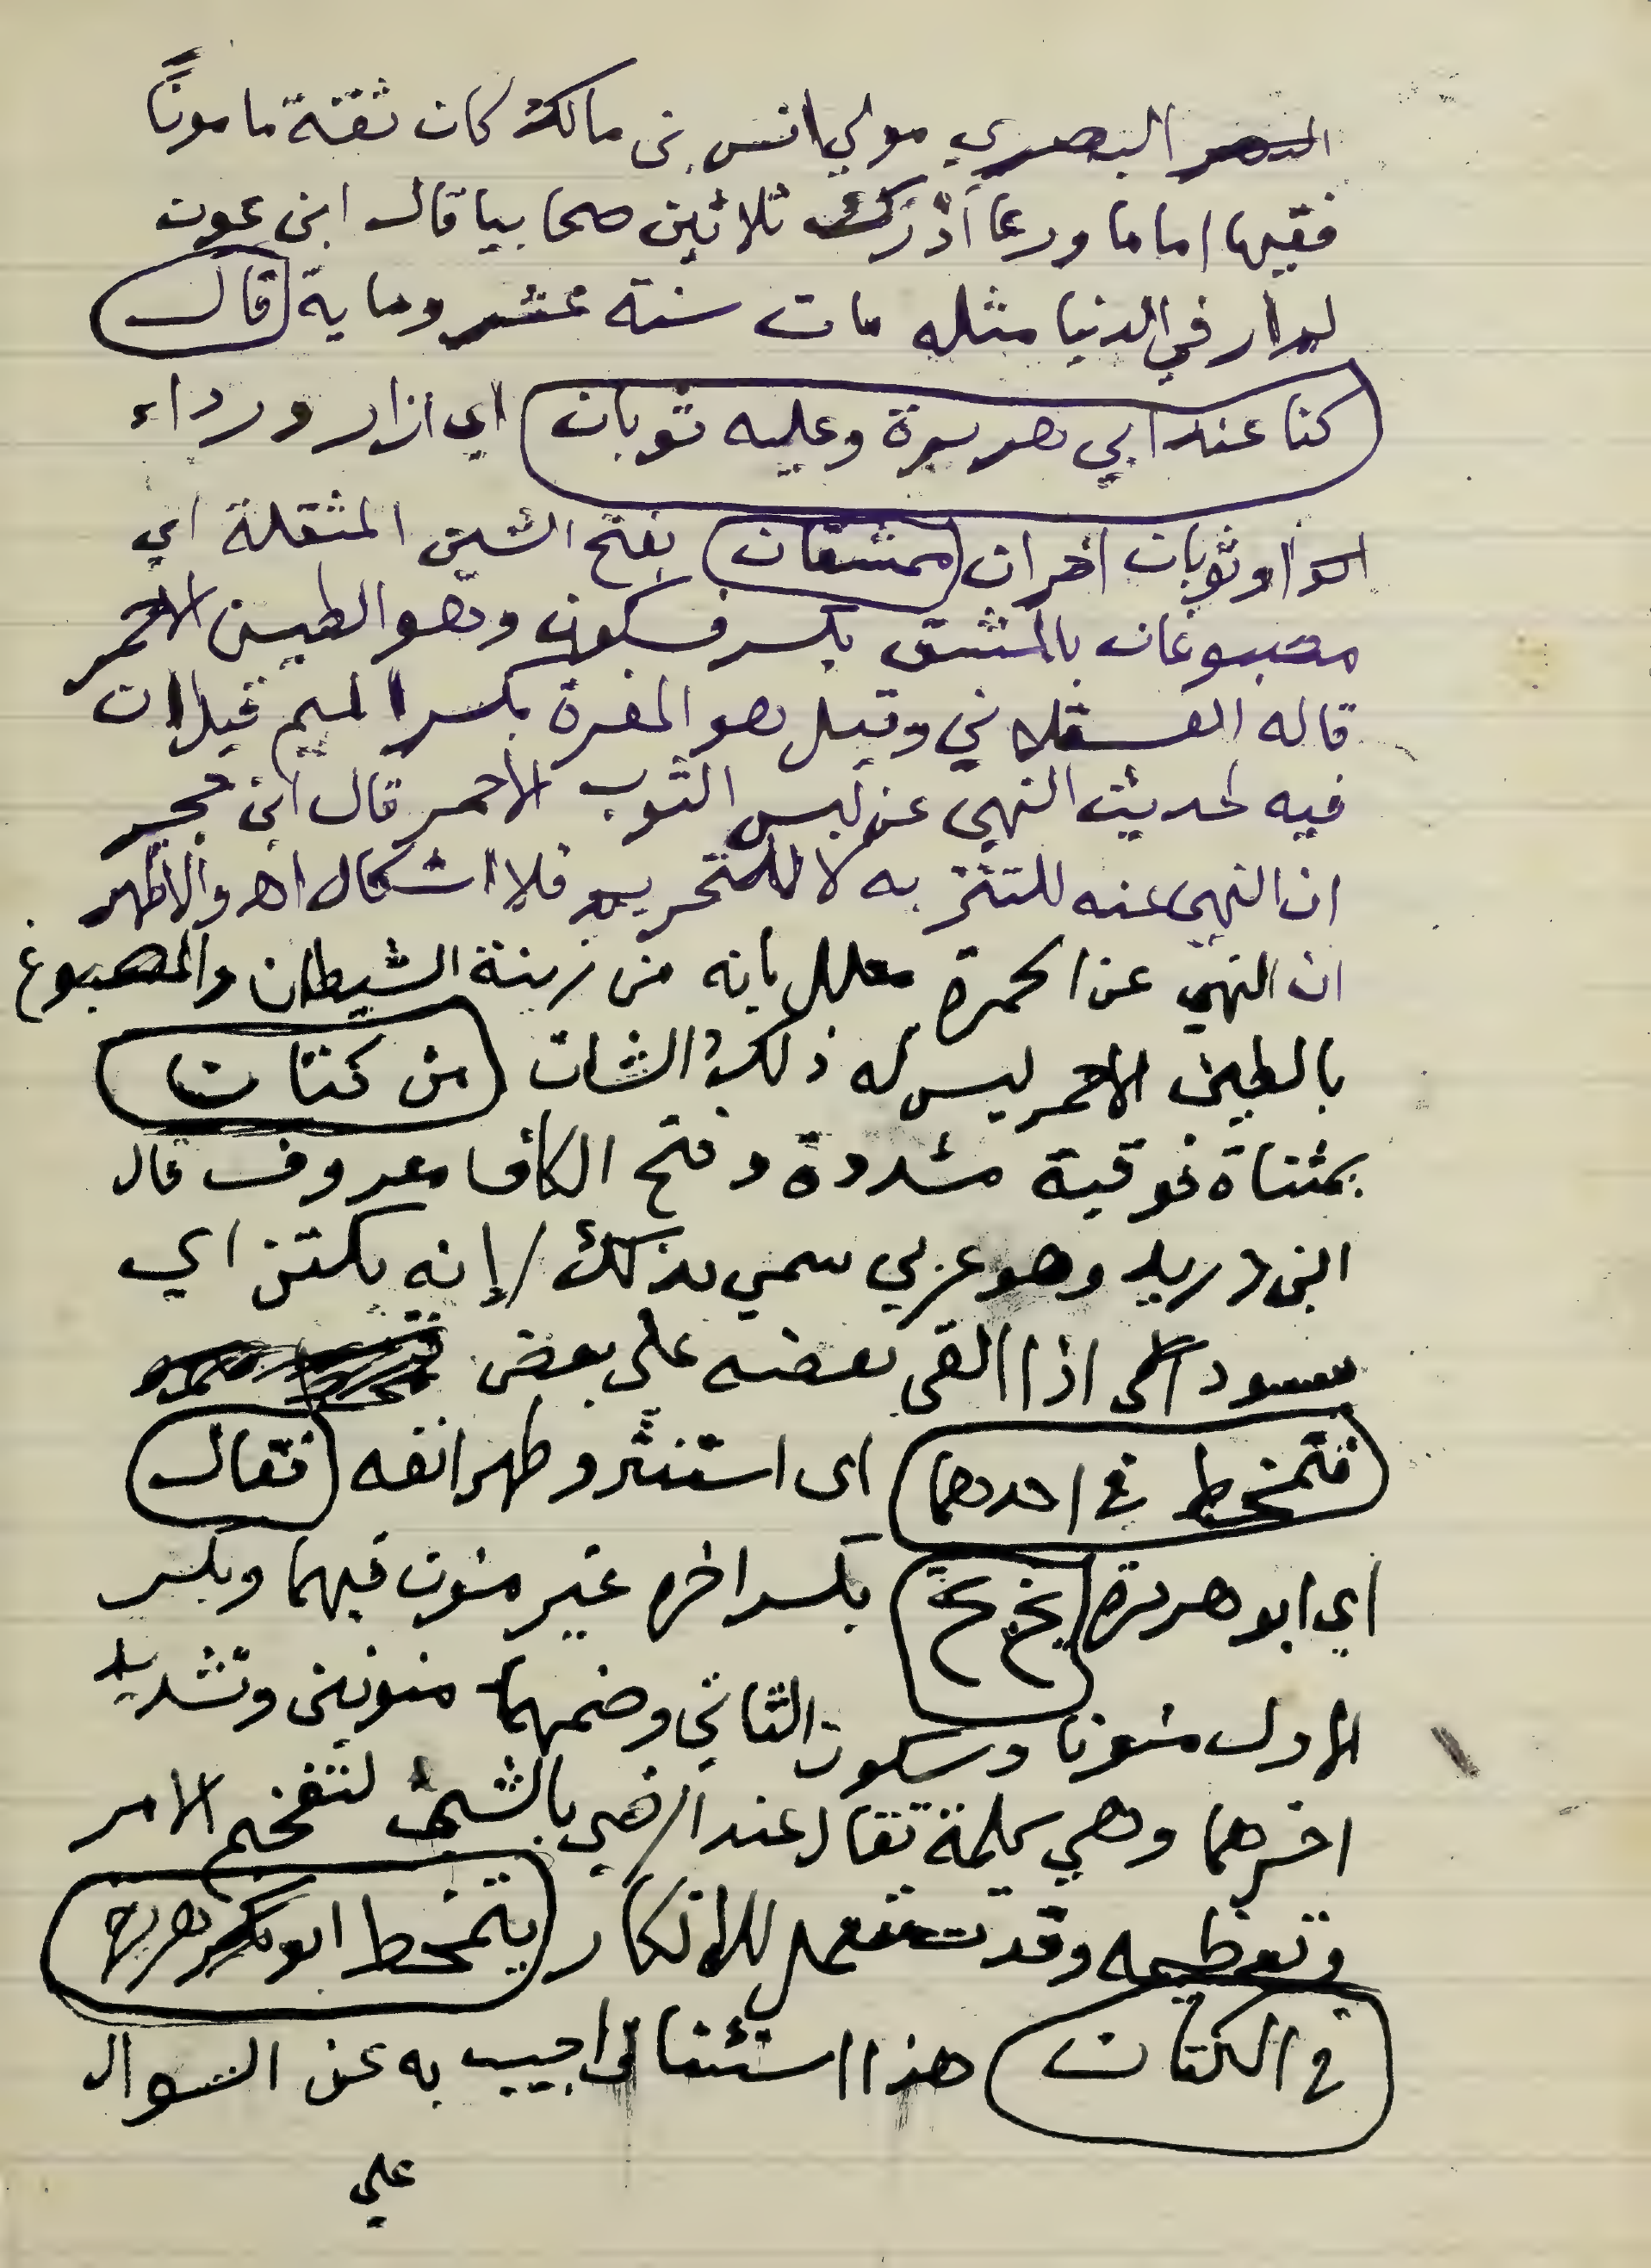 البصري مولي انس بن مالك كان ثقة مامونًا
فقيها اماما ورعا أدرك ثلاثين صحابيا قال ابن عون
لم ار في الدنيا مثله مات سنة عشر وماية قال
كنا عند ابي هريرة وعليه ثوبان اي ازار ورداء
او ثوبان اخران ممشقان بفتح الشين المثقلة اي
مصبوغان بالمشق بكسر فسكون وهو الطين الاحمر
قاله العسقلاني وقيل هو المغرة بكسر الميم قيل ان
فيه لحديث النهي عن لبس الثوب الاحمر قال ابن حجر
ان النهي عنه للتنزيه لا للتحريم فلا اشكال اه والاظهر
ان النهي عن الحمرة معلل بانه من زينة الشيطان والمصبوغ
بالطين الاحمر ليس له ذلك الشان من كتان
بمثناة فوقية مشددة وفتح الكاف معروف قال
ابن دريد وهو عربي سمي بذلك لإنه يكتن اي
يسود اذا القي بعضه على بعض
فتمخط في احدهما اى استنثر وطهر انفه فقال
اي ابو هريرة بخ بخ بكسر اخره غير منون فيهما وبكسر
الاول منونا وسكون الثاني وضمهما منونين وتشديد
اخرهما وهي كلمة تقال عند الرضي بالشئ لتفخيم الامر
وتعظيمه وقد تستعمل للانكار يتمخط ابو هريرة
في الكتان هذا استئنا اجيب به عن السوال
علي